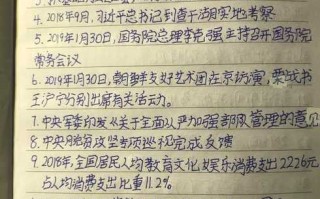 4、2018年9月,习近平总书记到查干湖实地考察
5、2019年1月30日,国务院总理李克强主持召开国务院
常务会议
6、2019年1月30日,朝鲜友好艺术团在京访演,栗战书
王沪宁分别出席有关活动。
7、中央军委印发《关于全面从严加强部队管理的意见
8、中央脱贫攻坚专项巡视完成反馈
9、2018年,全国居民人均教育文化娱乐消费支出2226元
占人均消费支出比重11.2%